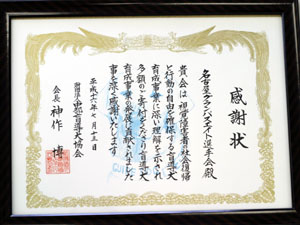 感謝状
名古屋グランパスエイト選手会殿
貴会は視覚障害者の社会復帰
と行動の自由を確保する盲導犬
育成事業に深い理解を示され
多額のご寄付をくださり盲導犬
育成事業の発展に貢献されました
事を深く感謝いたします
平成十六年七月十三日
協会
会長 神作 博